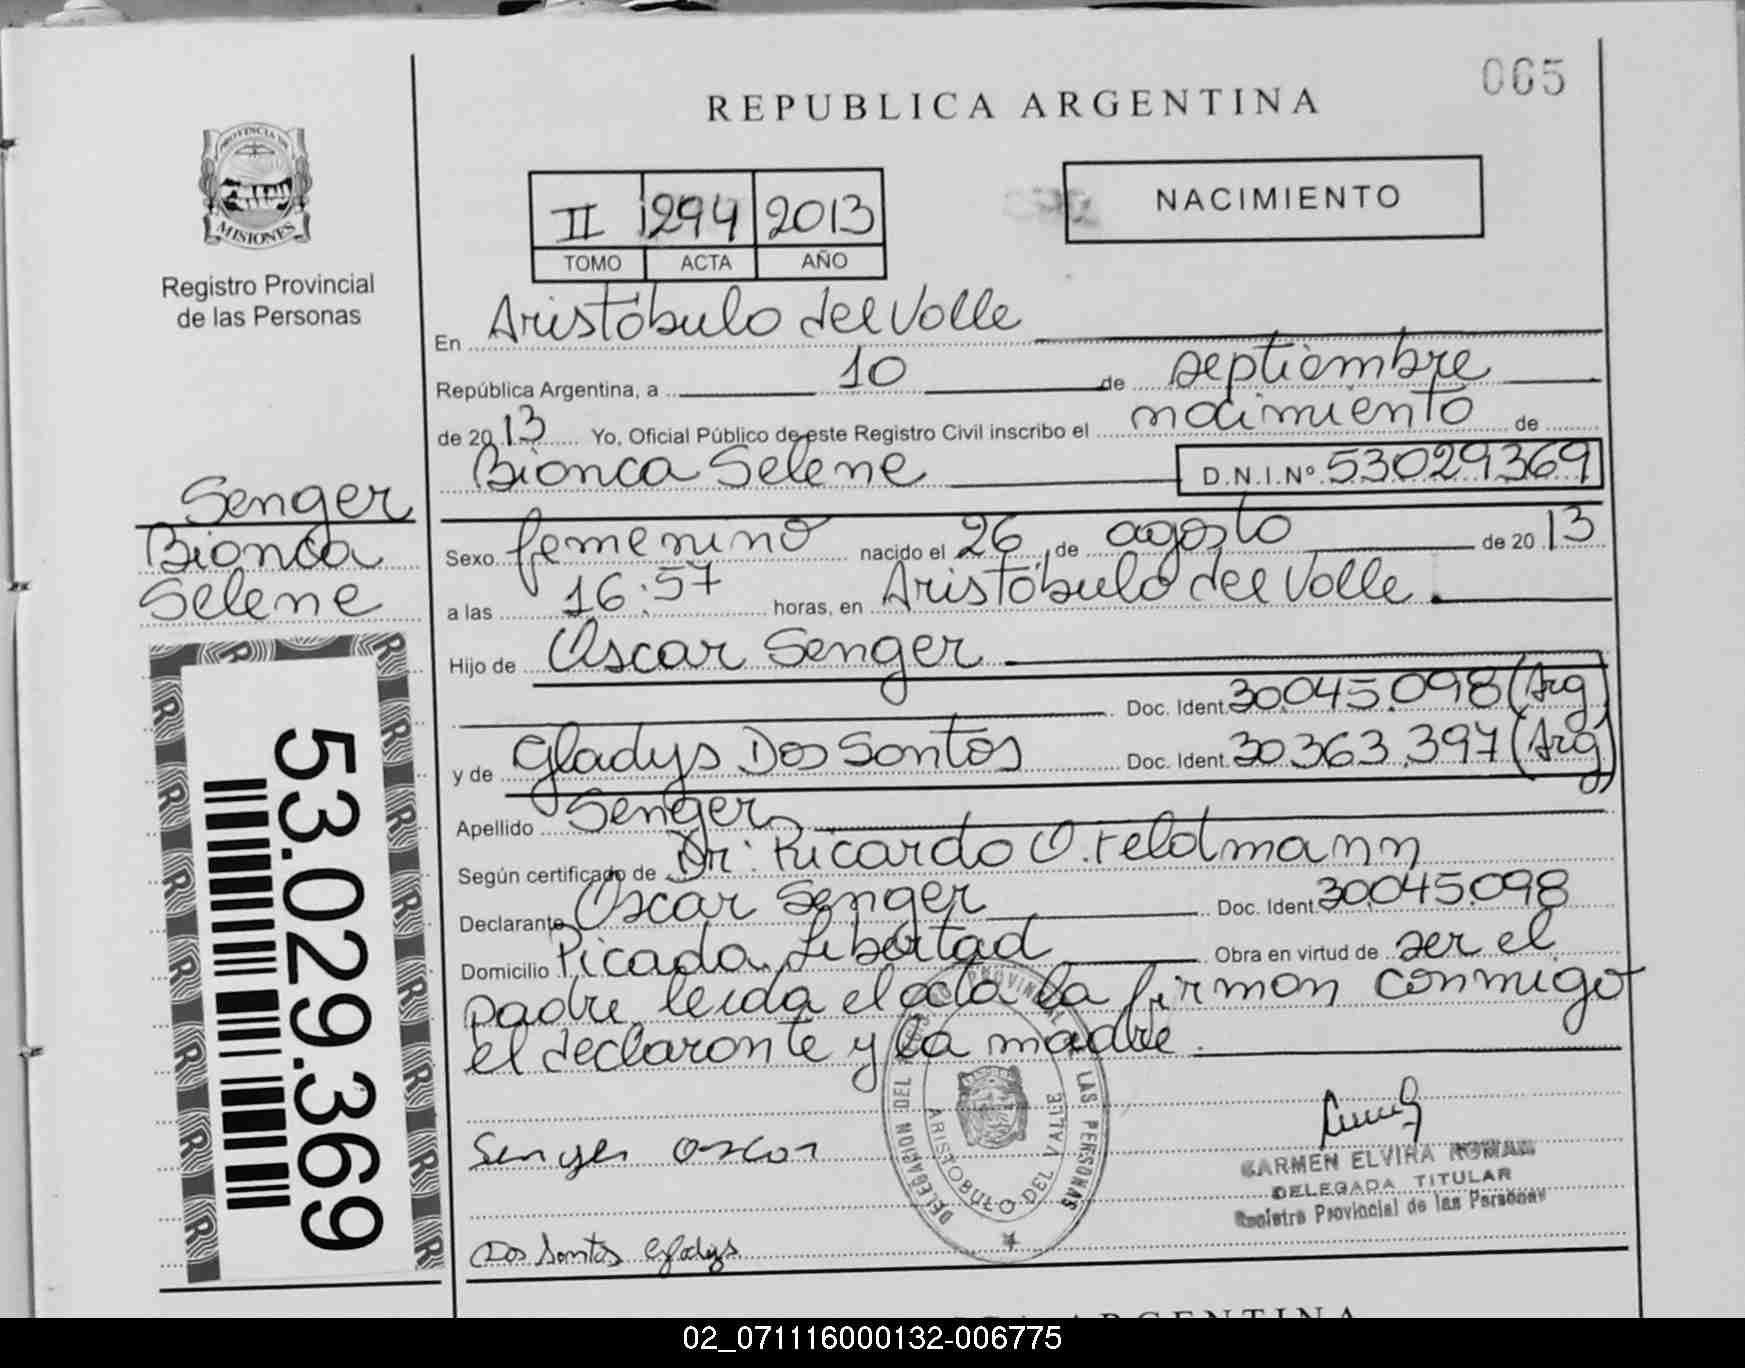 065
REPUBLICA ARGENTINA
PROVINCIA DE
MISIONES
Registro Provincial
de las Personas
II 294 2013
TOMO ACTA AÑO
NACIMIENTO
En Aristóbulo del Valle
República Argentina, a 10 de septiembre
de 2013 Yo, Oficial Público de este Registro Civil inscribo el nacimiento de
Bianca Selene D.N.I.Nº 53029369
Senger
Bianca
Selene
Sexo femenino nacido el 26 de agosto de 2013
a las 16:57 horas, en Aristóbulo del Valle
Hijo de Oscar Senger
Doc. Ident. 30.045.098 (Arg)
y de Gladys Dos Santos Doc. Ident. 30.363.397 (Arg)
Apellido Senger
Según certificado de Dr: Ricardo O. Feldmann
Declarante Oscar Senger Doc. Ident. 30.045.098
Domicilio Picada Libertad Obra en virtud de ser el
padre leida el acta la firman conmigo
el declarante y la madre.
53.029.369
Senger Oscar
Dos Santos Gladys
DELEGACION DEL REGISTRO PROVINCIAL DE LAS PERSONAS
ARISTOBULO DEL VALLE
CARMEN ELVIRA ROMAN
DELEGADA TITULAR
Registro Provincial de las Personas
REPUBLICA ARGENTINA
02_071116000132-006775